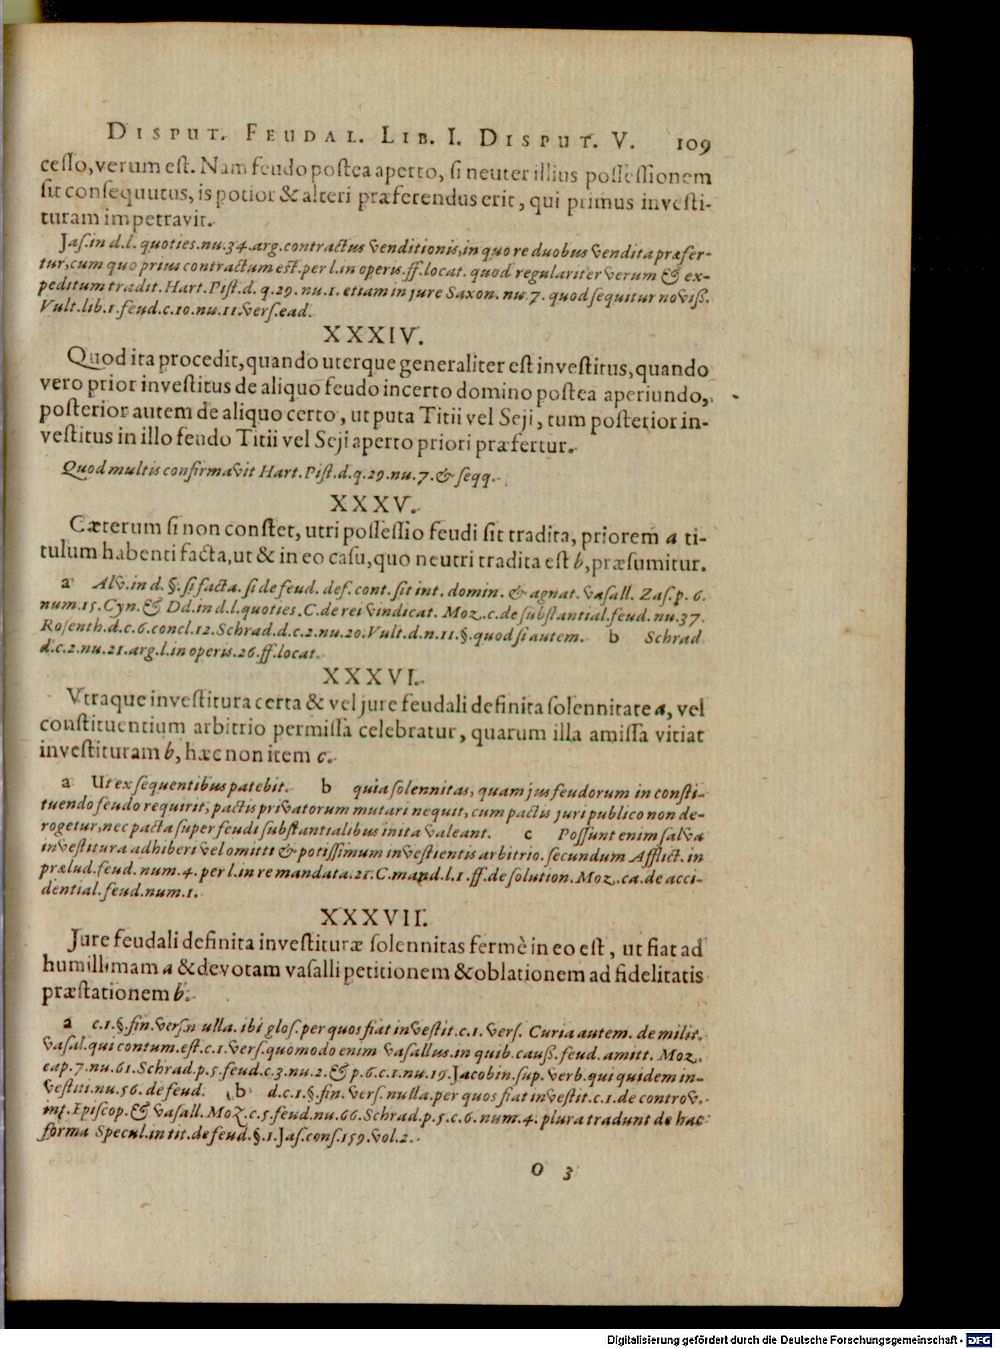 DISPUT. FEUDAL. LIB. I. DISPUT. V. 109
cesso, verum est. Nam feudo postea aperto, si neuter illius possessionem
sit consequutus, is potior & alteri præferendus erit, qui primus investi-
turam impetravit.
Jas. in d. l. quoties. nu. 34. arg. contractus venditionis, in quo re duobus vendita præfer-
tur, cum quo prius contractum est. per l. in operis. ff. locat. quod regulariter verum & ex-
peditum tradit. Hart. Pist. d. q. 29. nu. 1. etiam in jure Saxon. nu. 7. quod sequitur noviß.
Vult. lib. 1. feud. c. 10. nu. 11. vers. ead.
XXXIV.
Quod ita procedit, quando uterque generaliter est investitus, quando
vero prior investitus de aliquo feudo incerto domino postea aperiundo,
posterior autem de aliquo certo, ut puta Titii vel Seji, tum posterior in-
vestitus in illo feudo Titii vel Seji aperto priori præfertur.
Quod multis confirmavit Hart. Pist. d. q. 29. nu. 7. & seqq.
XXXV.
Cæterum si non constet, utri possessio feudi sit tradita, priorem a ti-
tulum habenti facta, ut & in eo casu, quo neutri tradita est b, præsumitur.
a Alv. in d. §. si facta. si de feud. def. cont. sit int. domin. & agnat. vasall. Zas. p. 6.
num. 15. Cyn. & Dd. in d. l. quoties. C. de rei vindicat. Moz. c. de substantial. feud. nu. 37.
Rosenth. d. c. 6. concl. 12. Schrad. d. c. 2. nu. 20. Vult. d. n. 11. §. quod si autem. b Schrad
d. c. 2. nu. 21. arg. l. in operis. 26. ff. locat.
XXXVI.
Vtraque investitura certa & vel jure feudali definita solennitate a, vel
constituentium arbitrio permissa celebratur, quarum illa amissa vitiat
investituram b, hæc non item c.
a Ut ex sequentibus patebit. b quia solennitas, quam jus feudorum in consti-
tuendo feudo requirit, pactis privatorum mutari nequit, cum pactis juri publico non de-
rogetur, nec pacta super feudi substantialibus inita valeant. c Possunt enim salva
investitura adhiberi vel omitti & potissimum investientis arbitrio. secundum Afflict. in
prælud. feud. num. 4. per l. in re mandata. 21. C. mand. l. 1. ff. de solution. Moz. ca. de acci-
dential. feud. num. 1.
XXXVII.
Jure feudali definita investituræ solennitas fermè in eo est, ut fiat ad
humillimam a & devotam vasalli petitionem & oblationem ad fidelitatis
præstationem b.
a c. 1. §. fin. vers. n ulla. ibi glos. per quos fiat investit. c. 1. vers. Curia autem. de milit.
vasal. qui contum. est. c. 1. vers. quomodo enim vasallus. in quib. cauß. feud. amitt. Moz.
cap. 7. nu. 61. Schrad. p. 5. feud. c. 3. nu. 2. & p. 6. c. 1. nu. 19. Jacobin. sup. verb. qui quidem in-
vestiti. nu. 56. de feud. b d. c. 1. §. fin. vers. nulla. per quos fiat investit. c. 1. de controv.
int. Episcop. & vasall. Moz. c. 5. feud. nu. 66. Schrad. p. 5. c. 6. num. 4. plura tradunt de hac
forma Specul. in tit. de feud. §. 1. Jas. cons. 159. vol. 2.
O 3
Digitalisierung gefördert durch die Deutsche Forschungsgemeinschaft - DFG